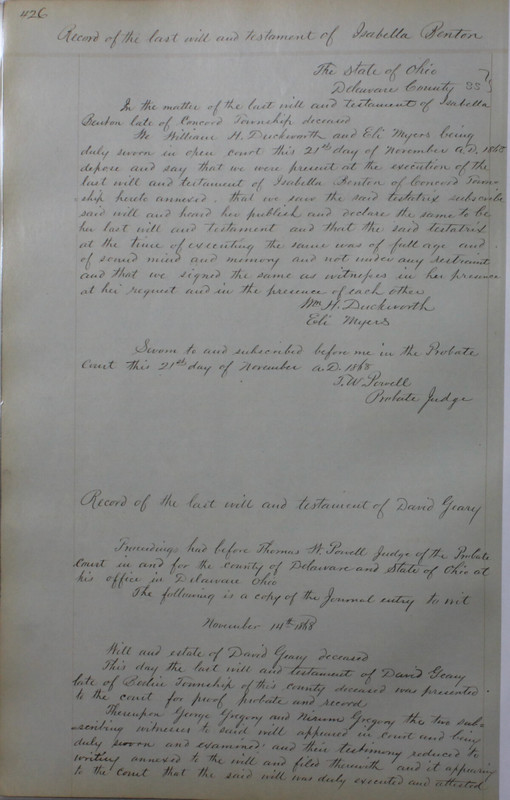 426
Record of the last will and testament of Isabella Benton
The State of Ohio
Delaware County SS
In the matter of the last will and testament of Isabella
Benton late of Concord Township deceased
We William H. Duckworth and Eli Myers being
duly sworn in open court this 21st day of November A.D. 1868
depose and say that we were present at the execution of the
last will and testament of Isabella Benton of Concord Town-
ship hereto annexed. that we saw the said testatrix subscribe
said will and heard her publish and declare the same to be
her last will and testament and that the said testatrix
at the time of executing the same was of full age and
of sound mind and memory and not under any restraint
and that we signed the same as witnesses in her presence
at her request and in the presence of each other
Wm H. Duckworth
Eli Myers
Sworn to and subscribed before me in the Probate
Court this 21st day of November A.D. 1868
T. W. Powell
Probate Judge
Record of the last will and testament of David Geary
Proceedings had before Thomas W. Powell Judge of the Probate
Court in and for the county of Delaware and State of Ohio at
his office in Delaware Ohio
The following is a copy of the Journal entry to wit
November 14th 1868
Will and estate of David Geary deceased
This day the last will and testament of David Geary
late of Township of this county deceased was presented
to the court for proof probate and record
Thereupon George Gregory and Gregory the two sub-
scribing witnesses to said will appeared in court and being
duly sworn and examined and their testimony reduced to
writing annexed to the will and filed therewith and it appearing
to the court that the said will was duly executed and attested